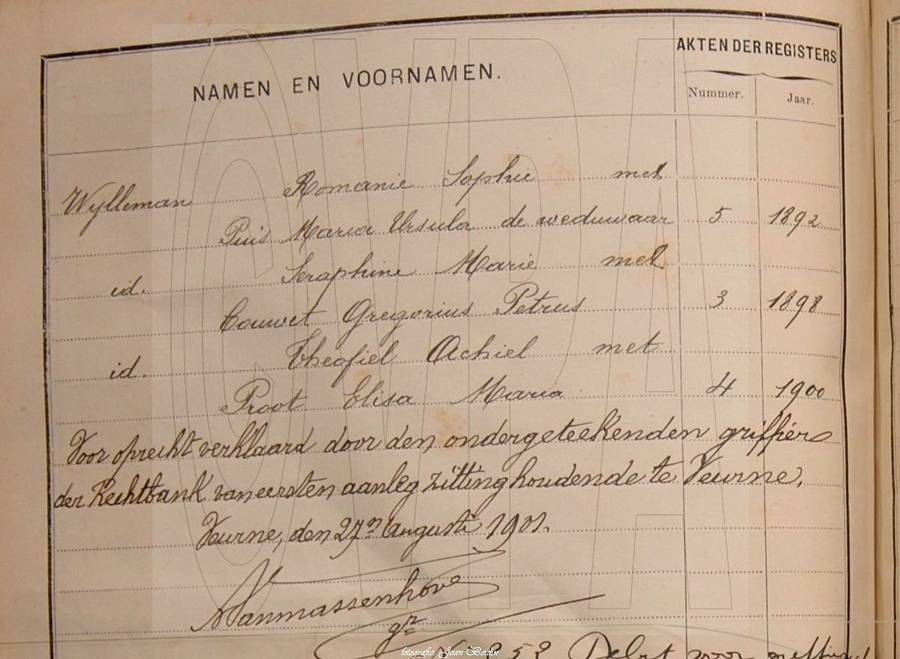 NAMEN EN VOORNAMEN.
AKTEN DER REGISTERS
Nummer. Jaar.
Wylleman Romanie Sophie met
Puis Maria Ursula de weduwaar 5 1892
id. Seraphine Marie met
Couwet Gregorius Petrus 3 1898
id. Theofiel Achiel met
Proot Elisa Maria 4 1900
Voor oprecht verklaard door den ondergeteekenden griffier
der Rechtbank van eersten aanleg zitting houdende te Veurne.
Veurne, den 27n Augusti 1901.
Vanmassenhove
gr